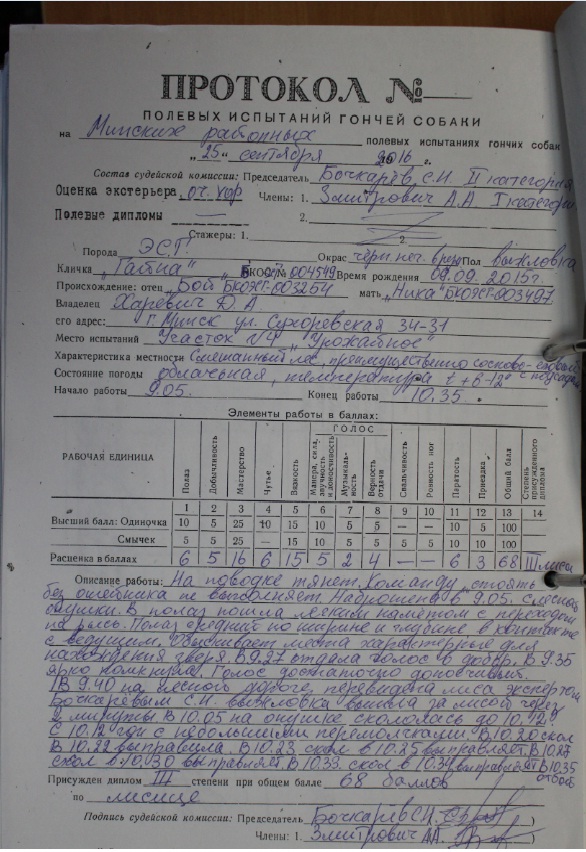 ПРОТОКОЛ №
ПОЛЕВЫХ ИСПЫТАНИЙ ГОНЧЕЙ СОБАКИ
на Минских районных полевых испытаниях гончих собак
„25“ сентября 2016 г.
Состав судейской комиссии: Председатель Бочкарёв С.И. II категория
Оценка экстерьера оч. хор Члены: 1. Змитрович А.А. I категори
Полевые дипломы — 2.
Стажеры: 1. 2.
Порода ЭСТ. Окрас черн. пег. Пол выжловка
Кличка „Гайна“ № 004549 Время рождения 09.09.2015г
Происхождение: отец „Бой“ БКОЯСТ-003254 мать „Ника“ БКОЯСТ-003497
Владелец Харевич Д А
его адрес: г. Минск ул. Сухоревская 34-31
Место испытаний Участок „Урожайное“
Характеристика местности Смешанный лес, преимущественно сосново-еловый с
Состояние погоды облачная, температура t +6-12°
Начало работы 9.05. Конец работы 10.35.
Элементы работы в баллах:
РАБОЧАЯ ЕДИНИЦА Полаз Добычливость Мастерство Чутье Вязкость ГОЛОС Манера, сила, звучность и доносчивость Музыкальность Верность отдачи Свальчивость Ровность ног Паратость Приездка Общий балл Степень присужденного диплома
1 2 3 4 5 6 7 8 9 10 11 12 13 14
Высший балл: Одиночка 10 5 25 10 15 10 5 5 — — 10 5 100
Смычек 5 5 25 — 15 10 5 5 5 5 10 10 100
Расценка в баллах 6 5 16 6 15 5 2 4 — — 6 3 68 III лиса
Описание работы: На поводке тянет. Команду „стоять“
без ошейника не выполняет. Наброшена в 9.05. С лесной
опушки. В полаз пошла легким наметом с переходом
на рысь. Полаз средний по ширине и глубине в контакте
с ведущим. Обыскивает места характерные для
нахождения зверя. В 9.27 отдала голос в добор. В 9.35
ярко помкнула. Голос достаточно доносчивый.
В 9.40 на лесной дороге перевидена лиса экспертом
Бочкаревым С.И. выжловка вышла за лисой через
2 минуты. В 10.05 на опушке скололась до 10.12.
С 10.12 гон с небольшими перемолчками. В 10.20 скол
В 10.22 выправила. В 10.23 скол в 10.25 выправляет. В 10.27
скол в 10.30 выправляет. В 10.33 скол в 10.34 выправляет. В 10.35
отбой
Присужден диплом III степени при общем балле 68 баллов
по лисице
Подпись судейской комиссии: Председатель Бочкарёв С.И.
Члены: 1. Змитрович А.А.